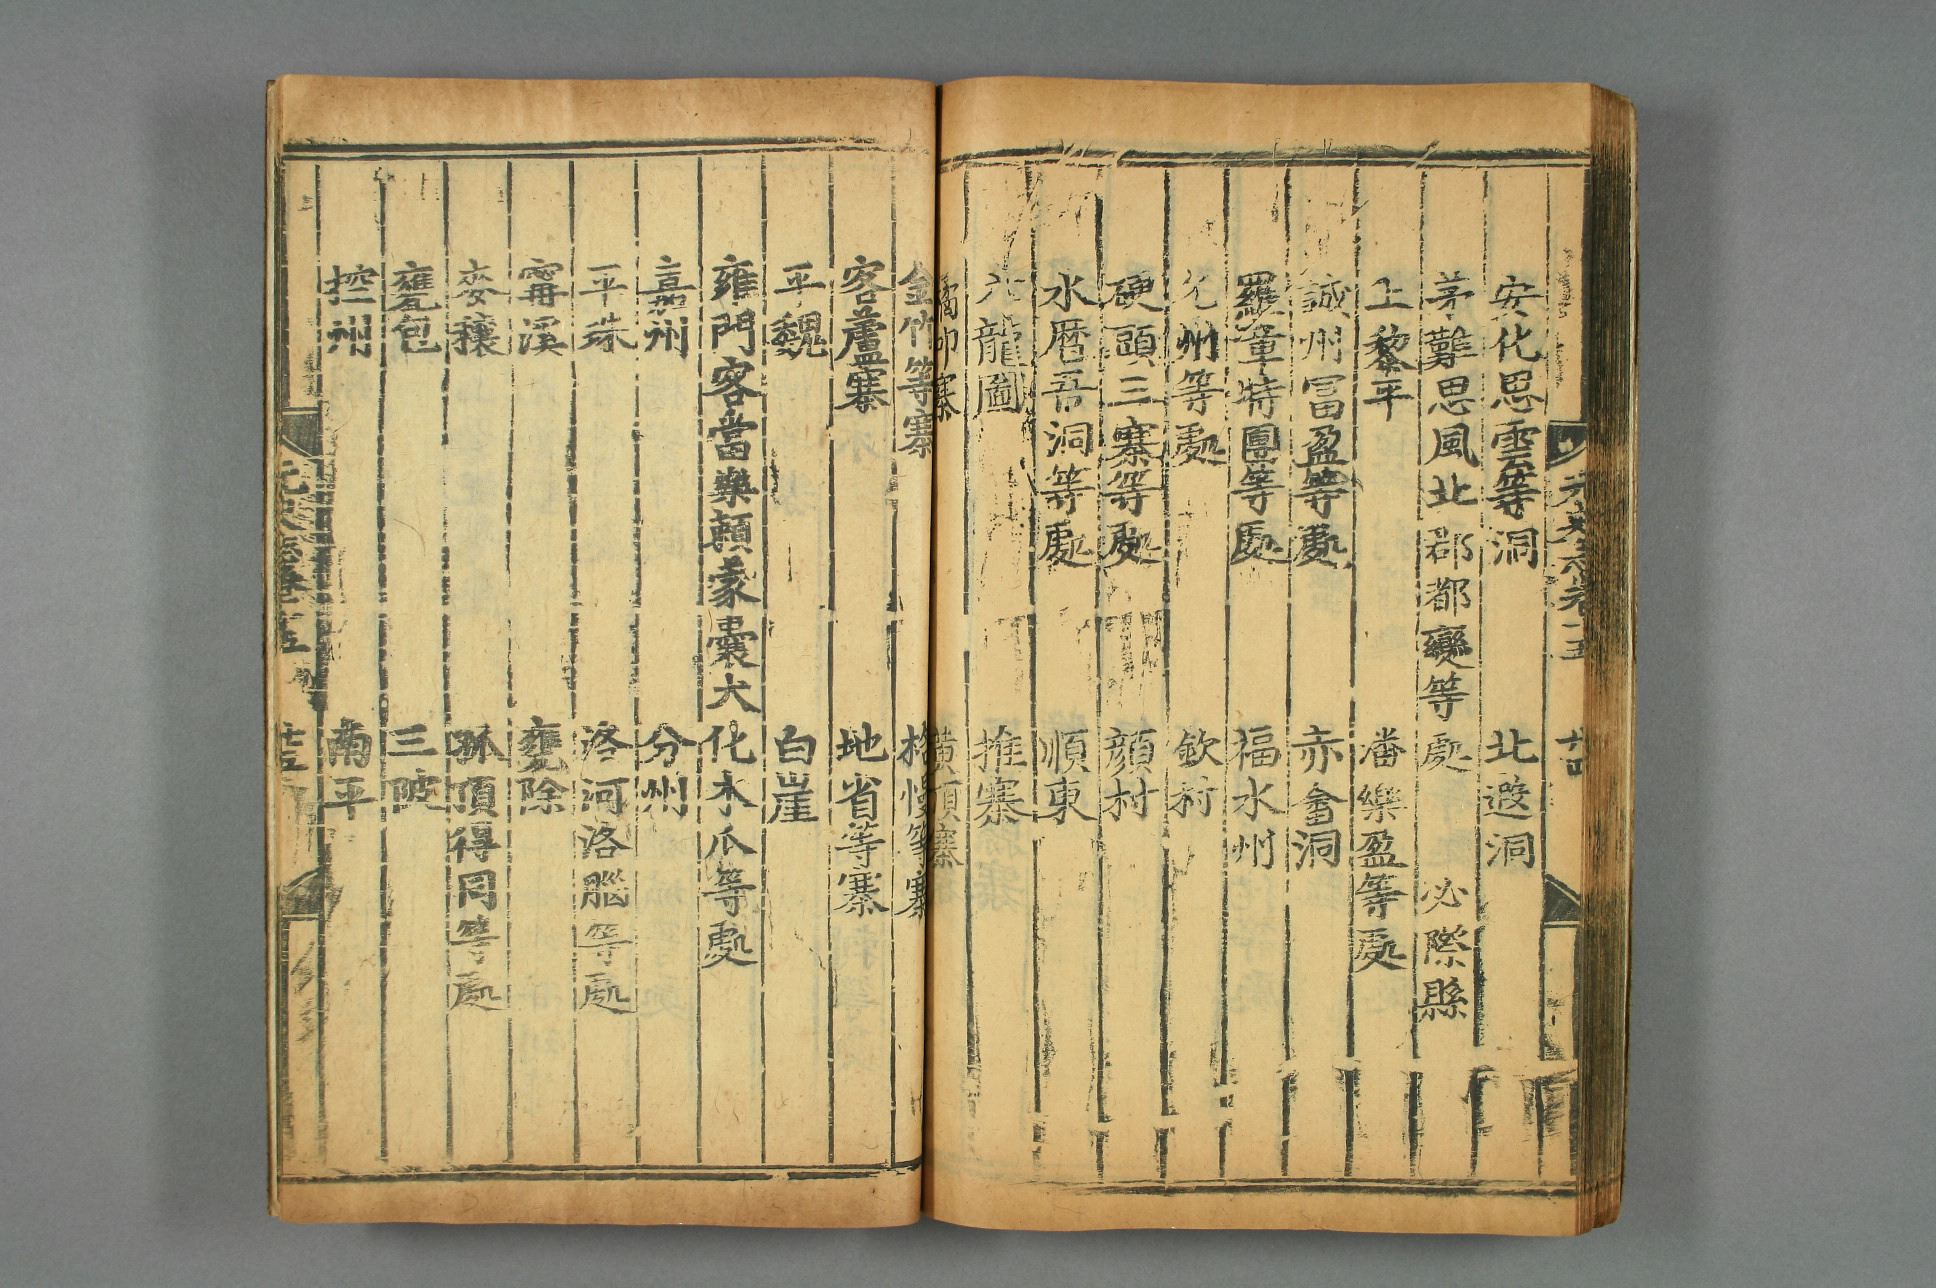 元史志卷十五 廿四
安化思雲等洞 北遐洞
茅難思風北郡都變等處 必際縣
上黎平 潘樂盈等處
誠州富盈等處 赤畬洞
羅章特團等處 福水州
允州等處 欽村
硬頭三寨等處 顔村
水曆吾洞等處 順東
六龍圖 推寨
橘叩寨 黃頂寨
金竹等寨 格慢等寨
客蘆寨 地省等寨
平魏 白崖
雍門客當樂賴蒙囊大 化木瓜等處
嘉州 分州
平珠 洛河洛腦等處
甯溪 甕除
麥穰 孤頂得同等處
甕包 三陂
控州 南平
元史志卷十五 廿五